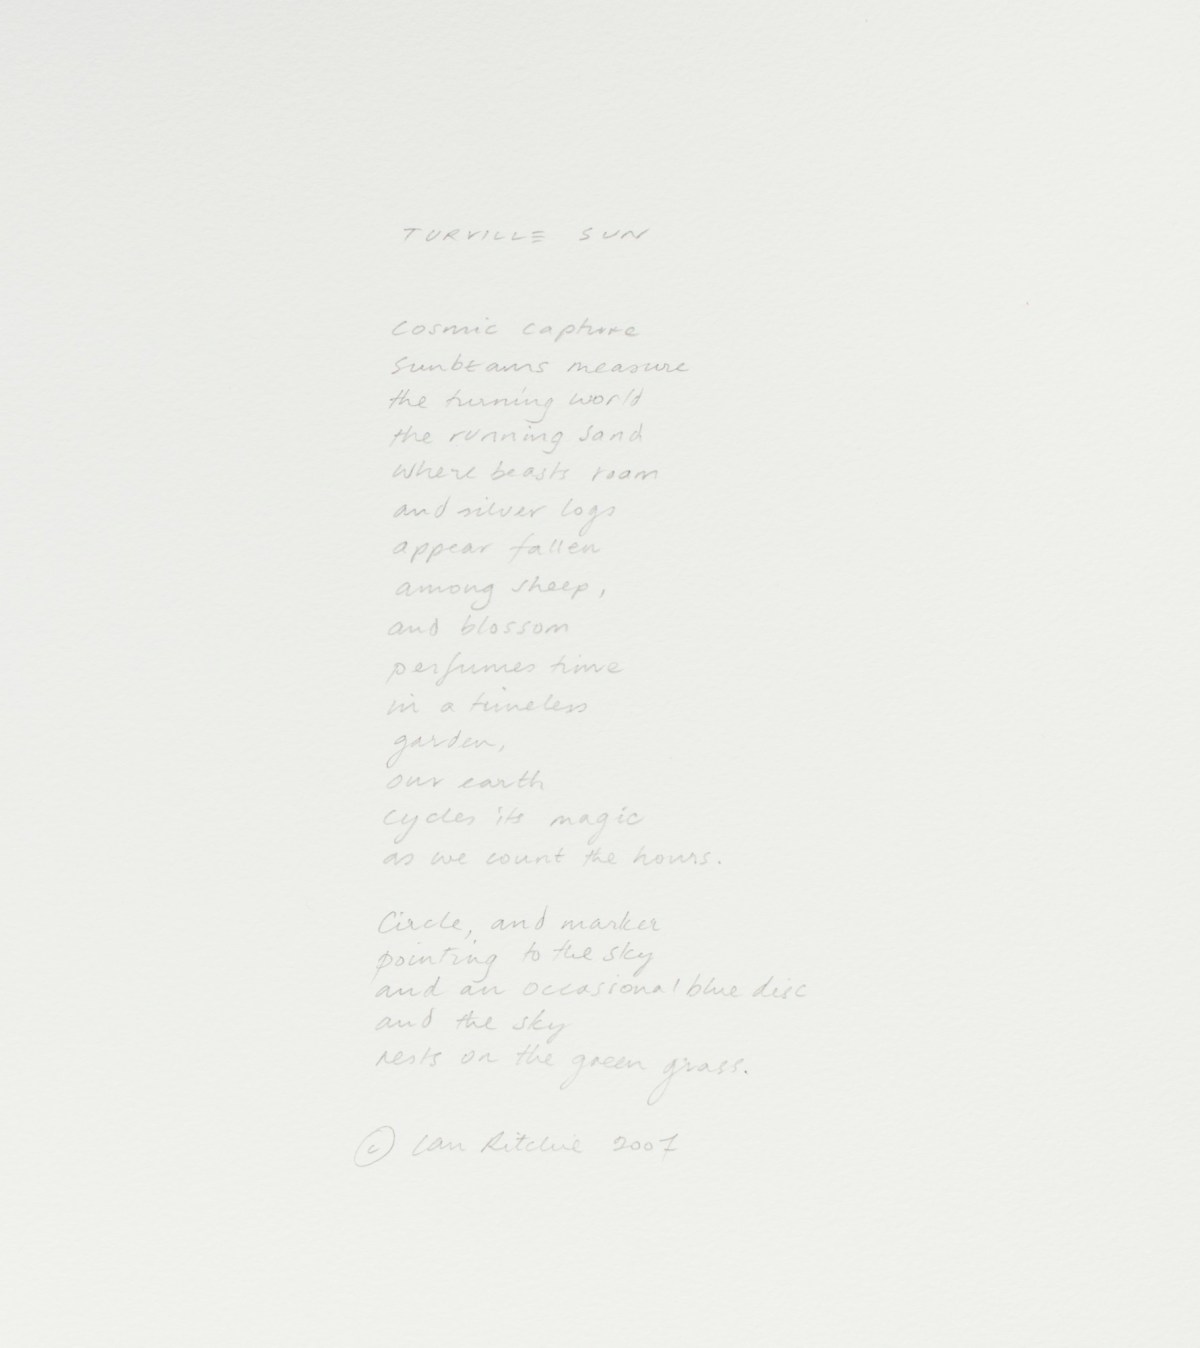 TURVILLE SUN
Cosmic capture
Sunbeams measure
the turning world
the running sand
where beasts roam
and silver logs
appear fallen
among sheep,
and blossom
perfumes time
in a timeless
garden,
our earth
cycles its magic
as we count the hours.
Circle, and marker
pointing to the sky
and an occasional blue disc
and the sky
rests on the green grass.
© Ian Ritchie 2007